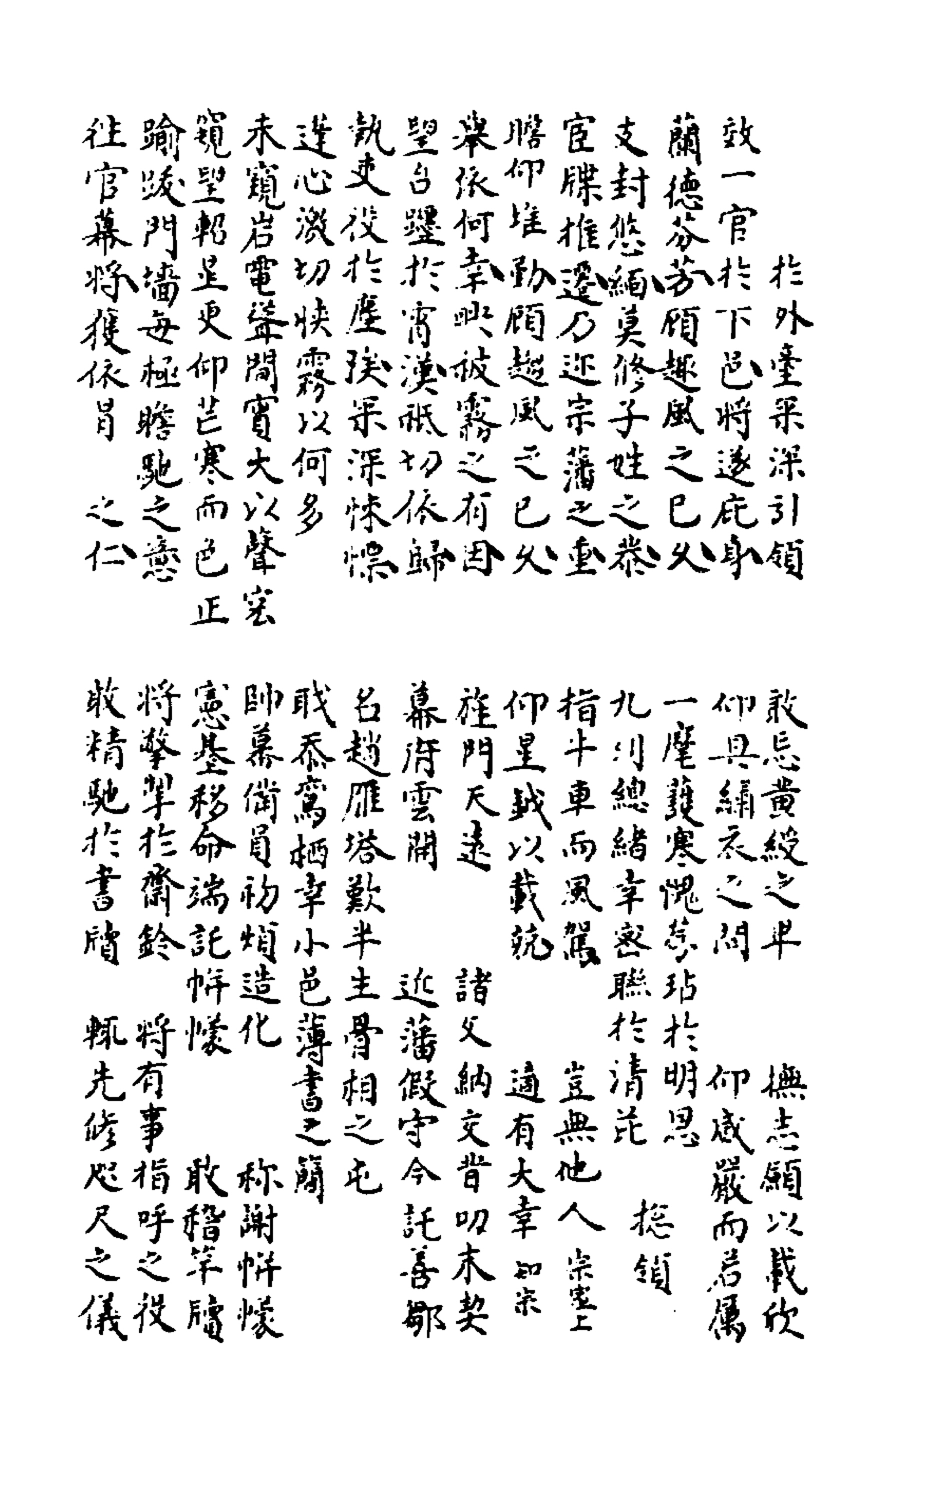 於外臺采深引領
效一官於下邑將遂庇身
蘭德芬芳願趣風之已久
支封悠緬莫修子姓之恭
宦牒推遷乃迩宗藩之重
瞻仰堆勤願趨風之已久
舉依何幸興披霧之有因
望台躔於霄漢祗切依歸
執吏役於塵埃采深悚慄
違心激切快霧以何多
未窺岩電聳聞賓大以聲宏
窺望軺星更仰芒寒而色正
踰踆門墻每極瞻馳之戀
往官幕將獲依冒 之仁
敢忘黄綬之卑 撫志願以載欣
仰具繡衣之問 仰威嚴而若厲
一麾護寒愧忝玷於明恩
九州總緒幸密聯於清茈 揔領
指牛車而風駕 豈無他人 宗室上
仰星鉞以載兢 適有大幸 知宗
旌門天遠 諸父納交昔叨末契
幕府雲開 近藩假守今託善鄒
名趙雁塔歎半生骨相之屯
戢忝鸞栖幸小邑薄書之簡
帥幕備員初煩造化 称謝帡幪
憲基移命端託帡幪 敢稽竿牘
將擎挈於齋鈴 將有事指呼之役
敢精馳於書牘 輒先修咫尺之儀